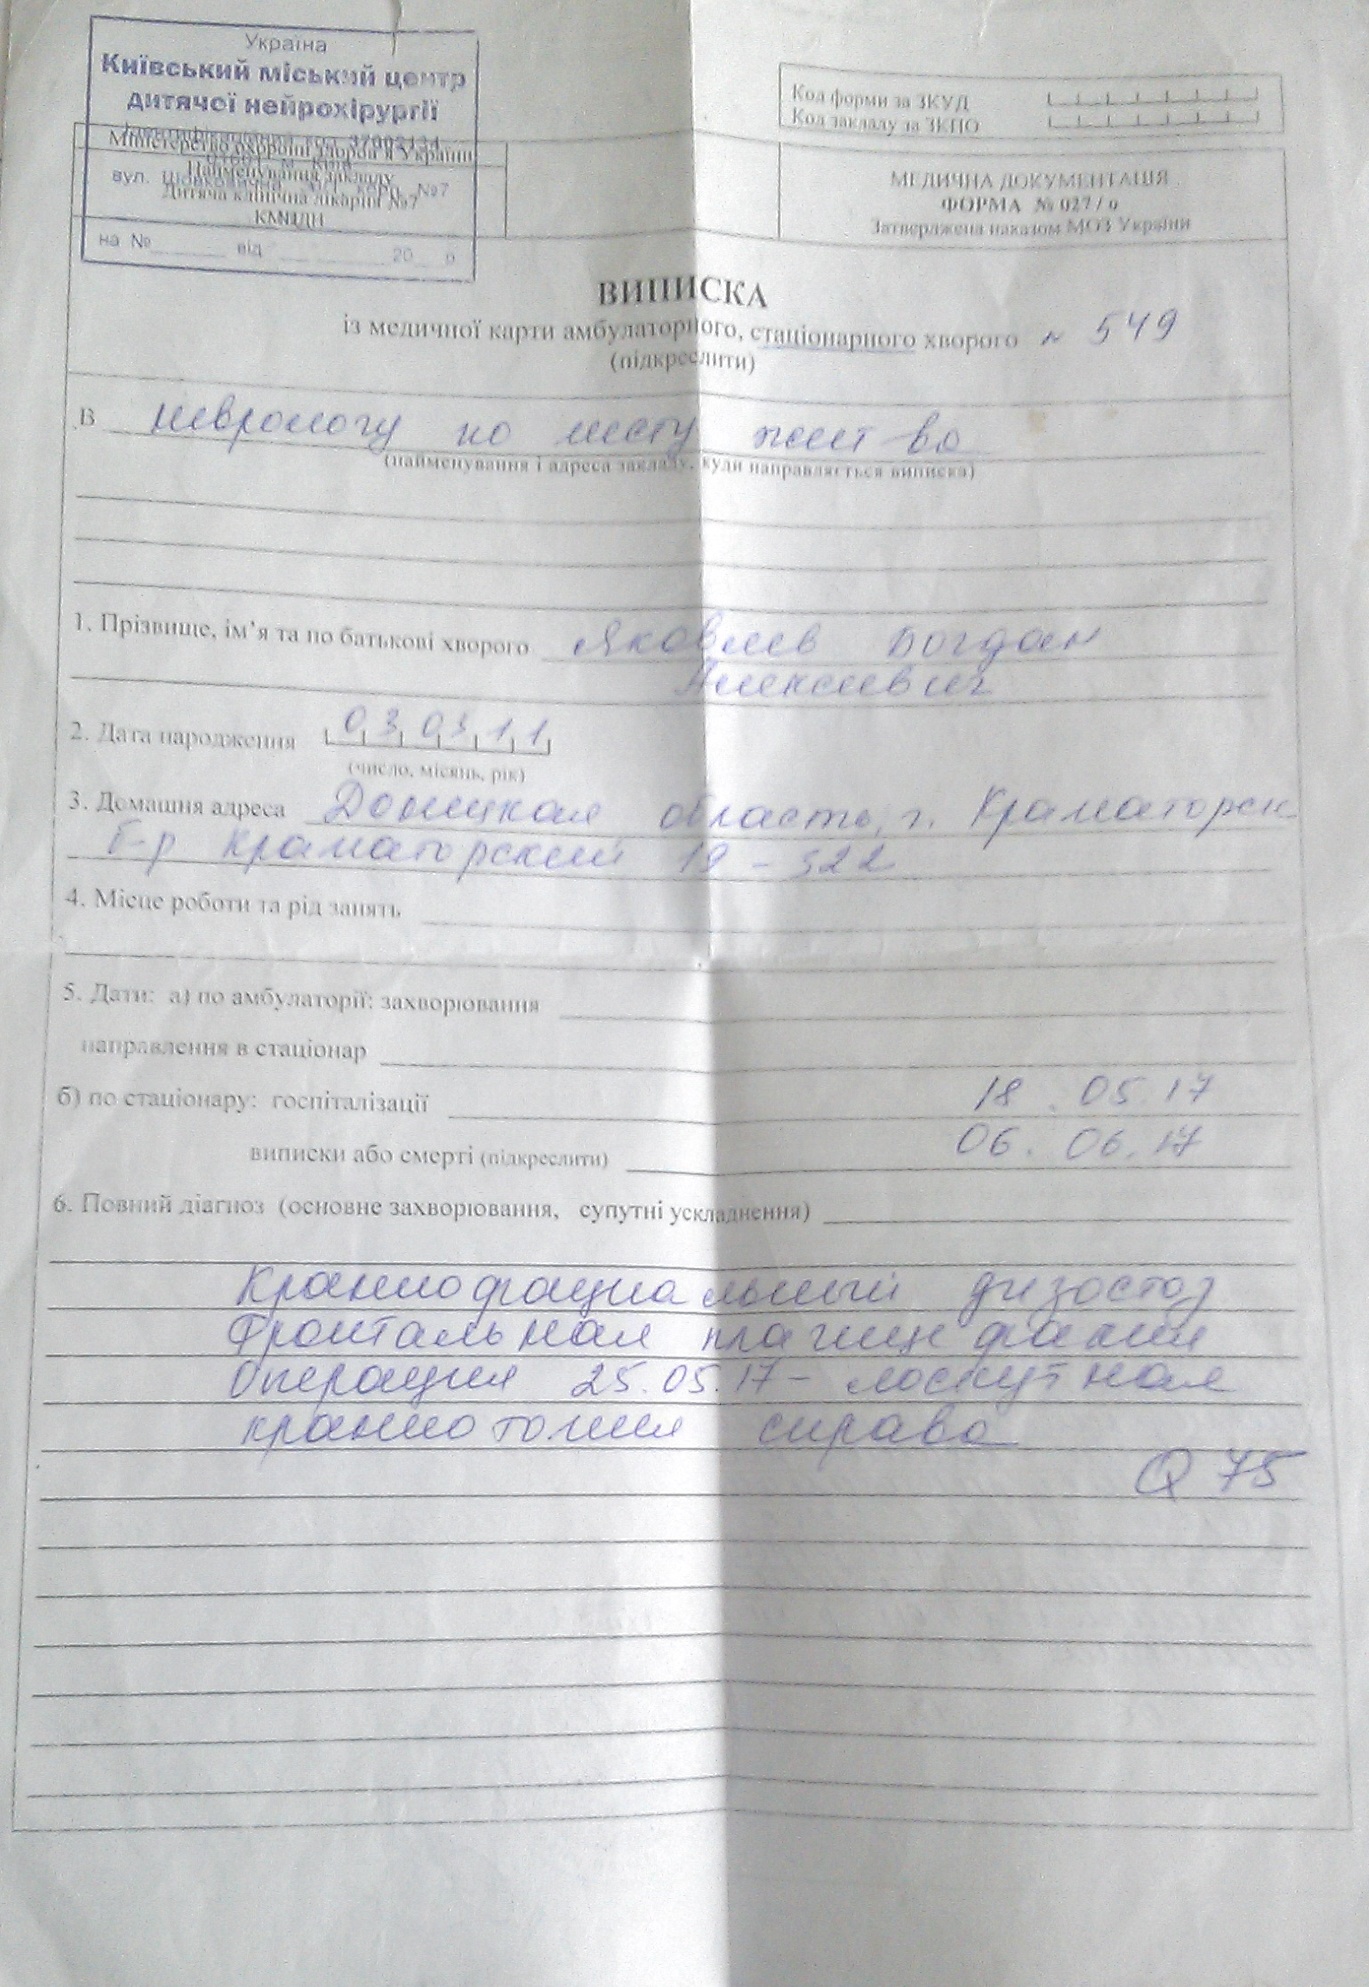 Україна
Київський міський центр
дитячої нейрохірургії
Ідентифікаційний код 37002134
Міністерство охорони здоров'я України
Найменування закладу
вул. Шовковична карп. №7
Дитяча клінічна лікарня №7
КМЦДН
на № від 20 р
Код форми за ЗКУД
Код закладу за ЗКПО
МЕДИЧНА ДОКУМЕНТАЦІЯ
ФОРМА № 027 / о
Затверджена наказом МОЗ України
ВИПИСКА
із медичної карти амбулаторного, стаціонарного хворого № 549
(підкреслити)
В неврологу по месту жит-ва
(найменування і адреса закладу, куди направляється виписка)
1. Прізвище, ім'я та по батькові хворого Яковлев Богдан
Алексеевич
2. Дата народження 030311
(число, місяць, рік)
3. Домашня адреса Донецкая область, г. Краматорск
б-р Краматорский 19 - 322
4. Місце роботи та рід занять
5. Дати: а) по амбулаторії: захворювання
направлення в стаціонар
б) по стаціонару: госпіталізації 18. 05. 17
виписки або смерті (підкреслити) 06. 06. 17
6. Повний діагноз (основне захворювання, супутні ускладнення)
Краниофациальный дизостоз
Фронтальная плагиоцефалия
Операция 25.05.17 - лоскутная
краниотомия справа
Q 75